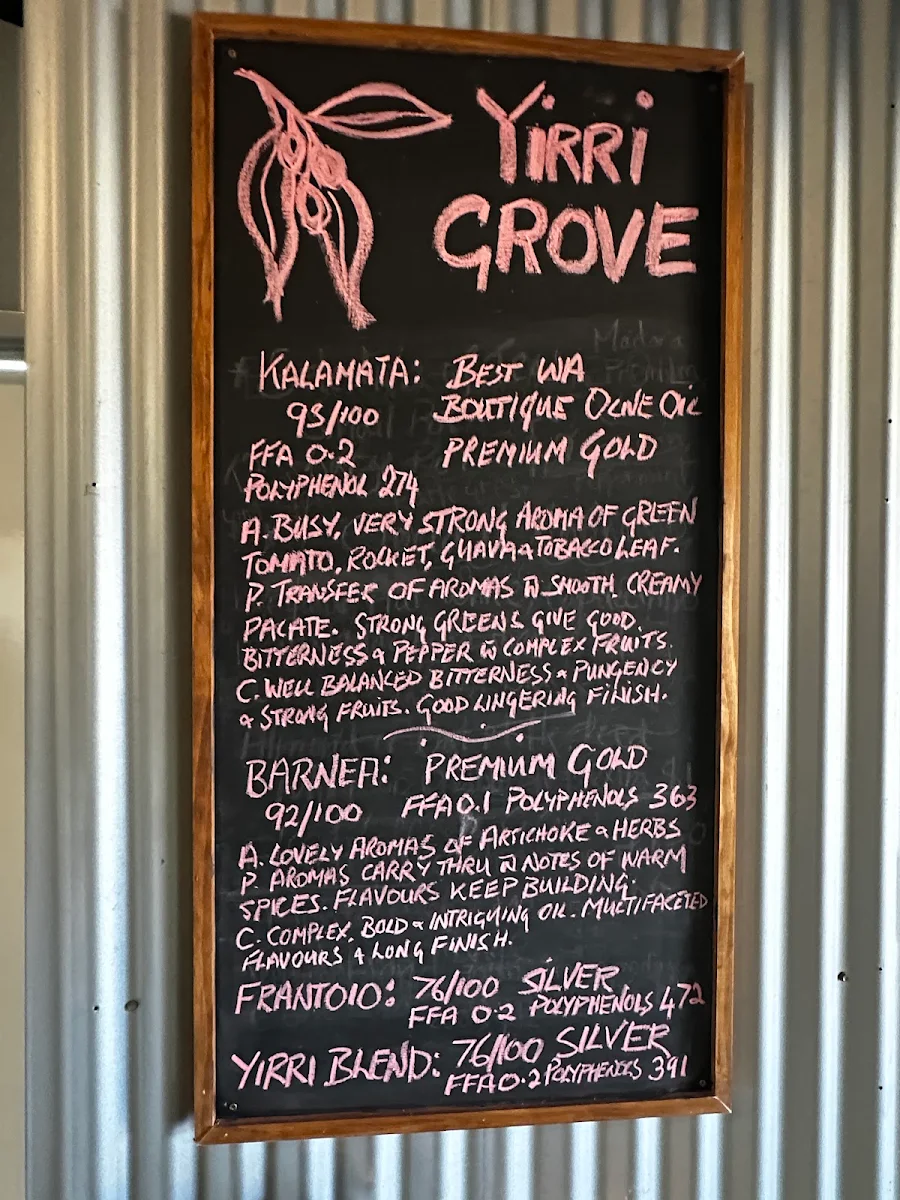 YIRRI
GROVE
KALAMATA: BEST WA
93/100 BOUTIQUE OLIVE OIL
FFA 0.2 PREMIUM GOLD
POLYPHENOL 274
A. BUSY, VERY STRONG AROMA OF GREEN
TOMATO, ROCKET, GUAVA & TOBACCO LEAF.
P. TRANSFER OF AROMAS W SMOOTH CREAMY
PALATE. STRONG GREENS GIVE GOOD.
BITTERNESS & PEPPER W COMPLEX FRUITS.
C. WELL BALANCED BITTERNESS & PUNGENCY
& STRONG FRUITS. GOOD LINGERING FINISH.
BARNEA: PREMIUM GOLD
92/100 FFA 0.1 POLYPHENOLS 363
A. LOVELY AROMAS OF ARTICHOKE & HERBS
P. AROMAS CARRY THRU W NOTES OF WARM
SPICES. FLAVOURS KEEP BUILDING.
C. COMPLEX, BOLD & INTRIGUING OIL. MULTIFACETED
FLAVOURS & LONG FINISH.
FRANTOIO: 76/100 SILVER
FFA 0.2 POLYPHENOLS 472
YIRRI BLEND: 76/100 SILVER
FFA 0.2 POLYPHENOLS 391